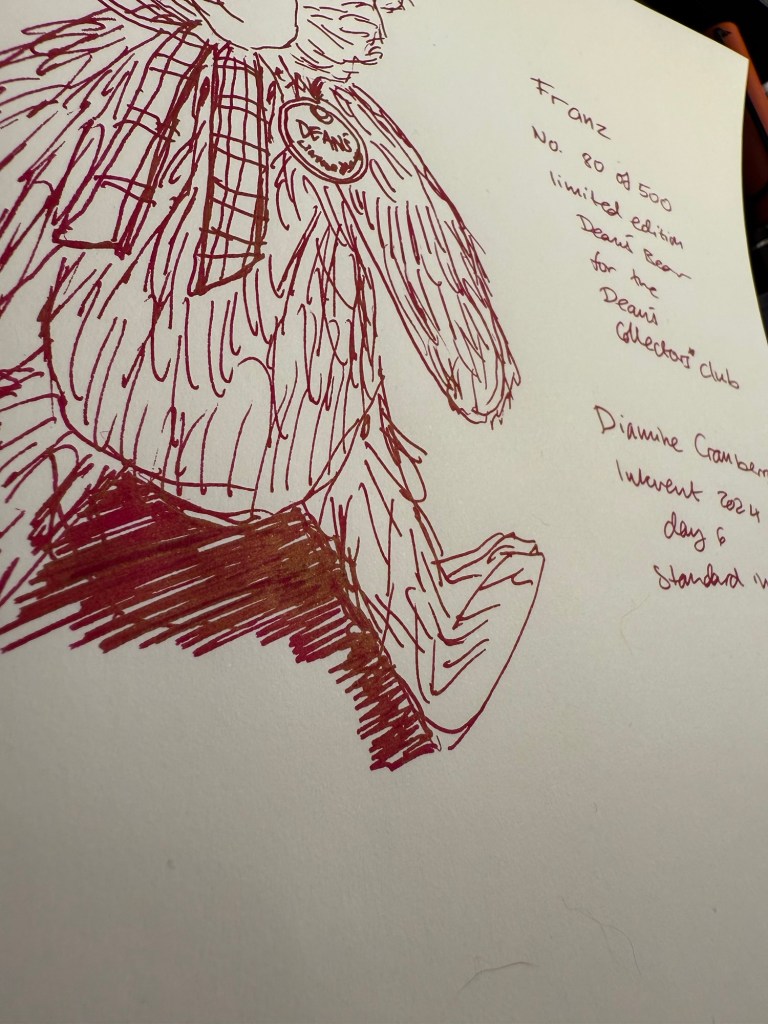 DEAN'S
Franz
No. 80 of 500
limited edition
Dean's Bear
for the
Dean's
Collectors' club
Diamine Cranberr
Inkvent 2024
day 6
Standard in